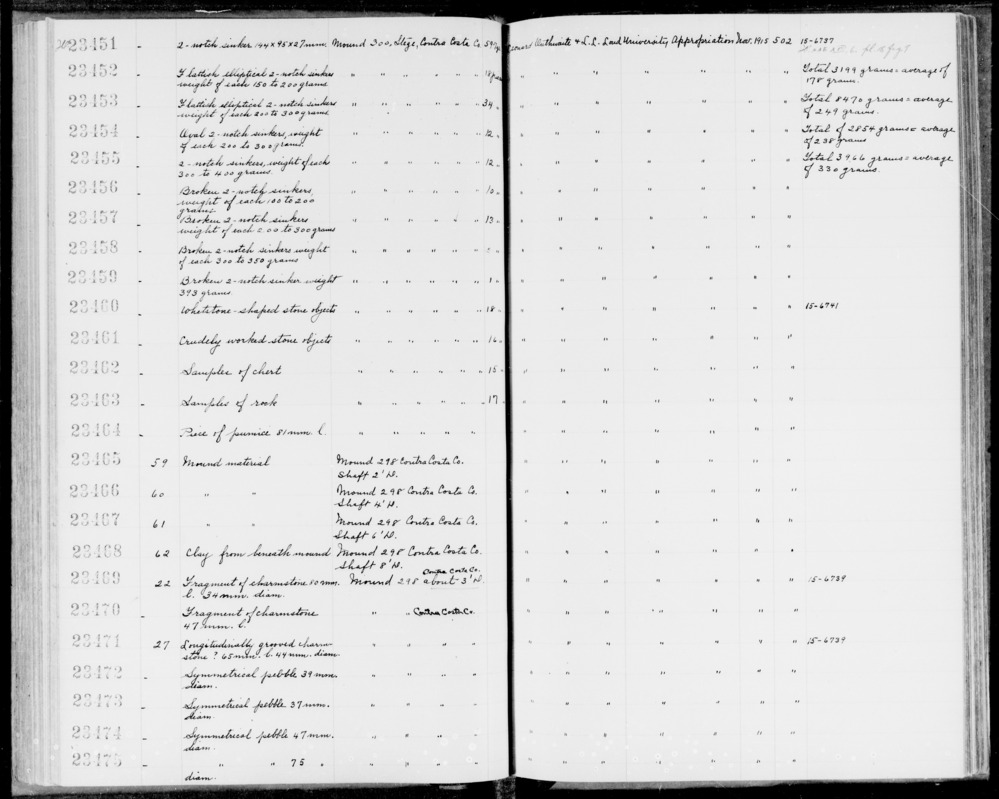 23451 - 2-notch sinker 144x95x27mm. Mound 300, Stege, Contra Costa Co. Leonard Outhwaite & L.L. Loud University Appropriation Nov. 1915 502 15-6737
23452 - Flattish elliptical 2-notch sinkers " " " " " " 18 " " " " " " Total 3199 grams = average of
weight of each 150 to 200 grams 178 grams.
23453 - Flattish elliptical 2-notch sinkers " " " " " " 34 " " " " " " Total 8470 grams = average
weight of each 200 to 300 grams of 249 grams.
23454 - Oval 2-notch sinkers, weight " " " " " " 12 " " " " " " Total of 2854 grams = average
of each 200 to 300 grams. of 238 grams
23455 - 2-notch sinkers, weight of each " " " " " " 12 " " " " " " Total 3966 grams = average
300 to 400 grams of 330 grams.
23456 - Broken 2-notch sinkers, " " " " " " 10 " " " " " "
weight of each 100 to 200
grams
23457 - Broken 2-notch sinkers " " " " " " 13 " " " " " "
weight of each 200 to 300 grams
23458 - Broken 2-notch sinkers weight " " " " " " " " " " " "
of each 300 to 350 grams
23459 - Broken 2-notch sinker weight " " " " " " 1 " " " " " "
393 grams.
23460 - Whetstone-shaped stone objects " " " " " " 18 " " " " " " 15-6741
23461 - Crudely worked stone objects " " " " " " 16 " " " " " "
23462 - Samples of chert " " " " " " 15 " " " " " "
23463 - Samples of rock " " " " " " 17 " " " " " "
23464 - Piece of pumice 81 mm. l. " " " " " " " " " " "
23465 59 Mound material Mound 298 Contra Costa Co. " " " " " "
Shaft 2' D.
23466 60 " " Mound 298 Contra Costa Co. " " " " " "
Shaft 4' D.
23467 61 " " Mound 298 Contra Costa Co. " " " " " "
Shaft 6' D.
23468 62 Clay from beneath mound Mound 298 Contra Costa Co. " " " " " "
Shaft 8' D.
Contra Costa Co.
23469 22 Fragment of charmstone 80 mm. Mound 298 about 3' D. " " " " " " 15-6739
l. 34 mm. diam.
23470 - Fragment of charmstone " " Contra Costa Co. " " " " " "
47 mm. l.
23471 27 Longitudinally grooved charm- " " " " " " " " " " 15-6739
stone? 65 mm. l. 44 mm. diam.
23472 - Symmetrical pebble 39 mm. " " " " " " " " " "
diam.
23473 - Symmetrical pebble 37 mm. " " " " " " " " " "
diam.
23474 - Symmetrical pebble 47 mm. " " " " " " " " " "
diam.
23475 - " " 75 " " " " " " " " " " "
diam.